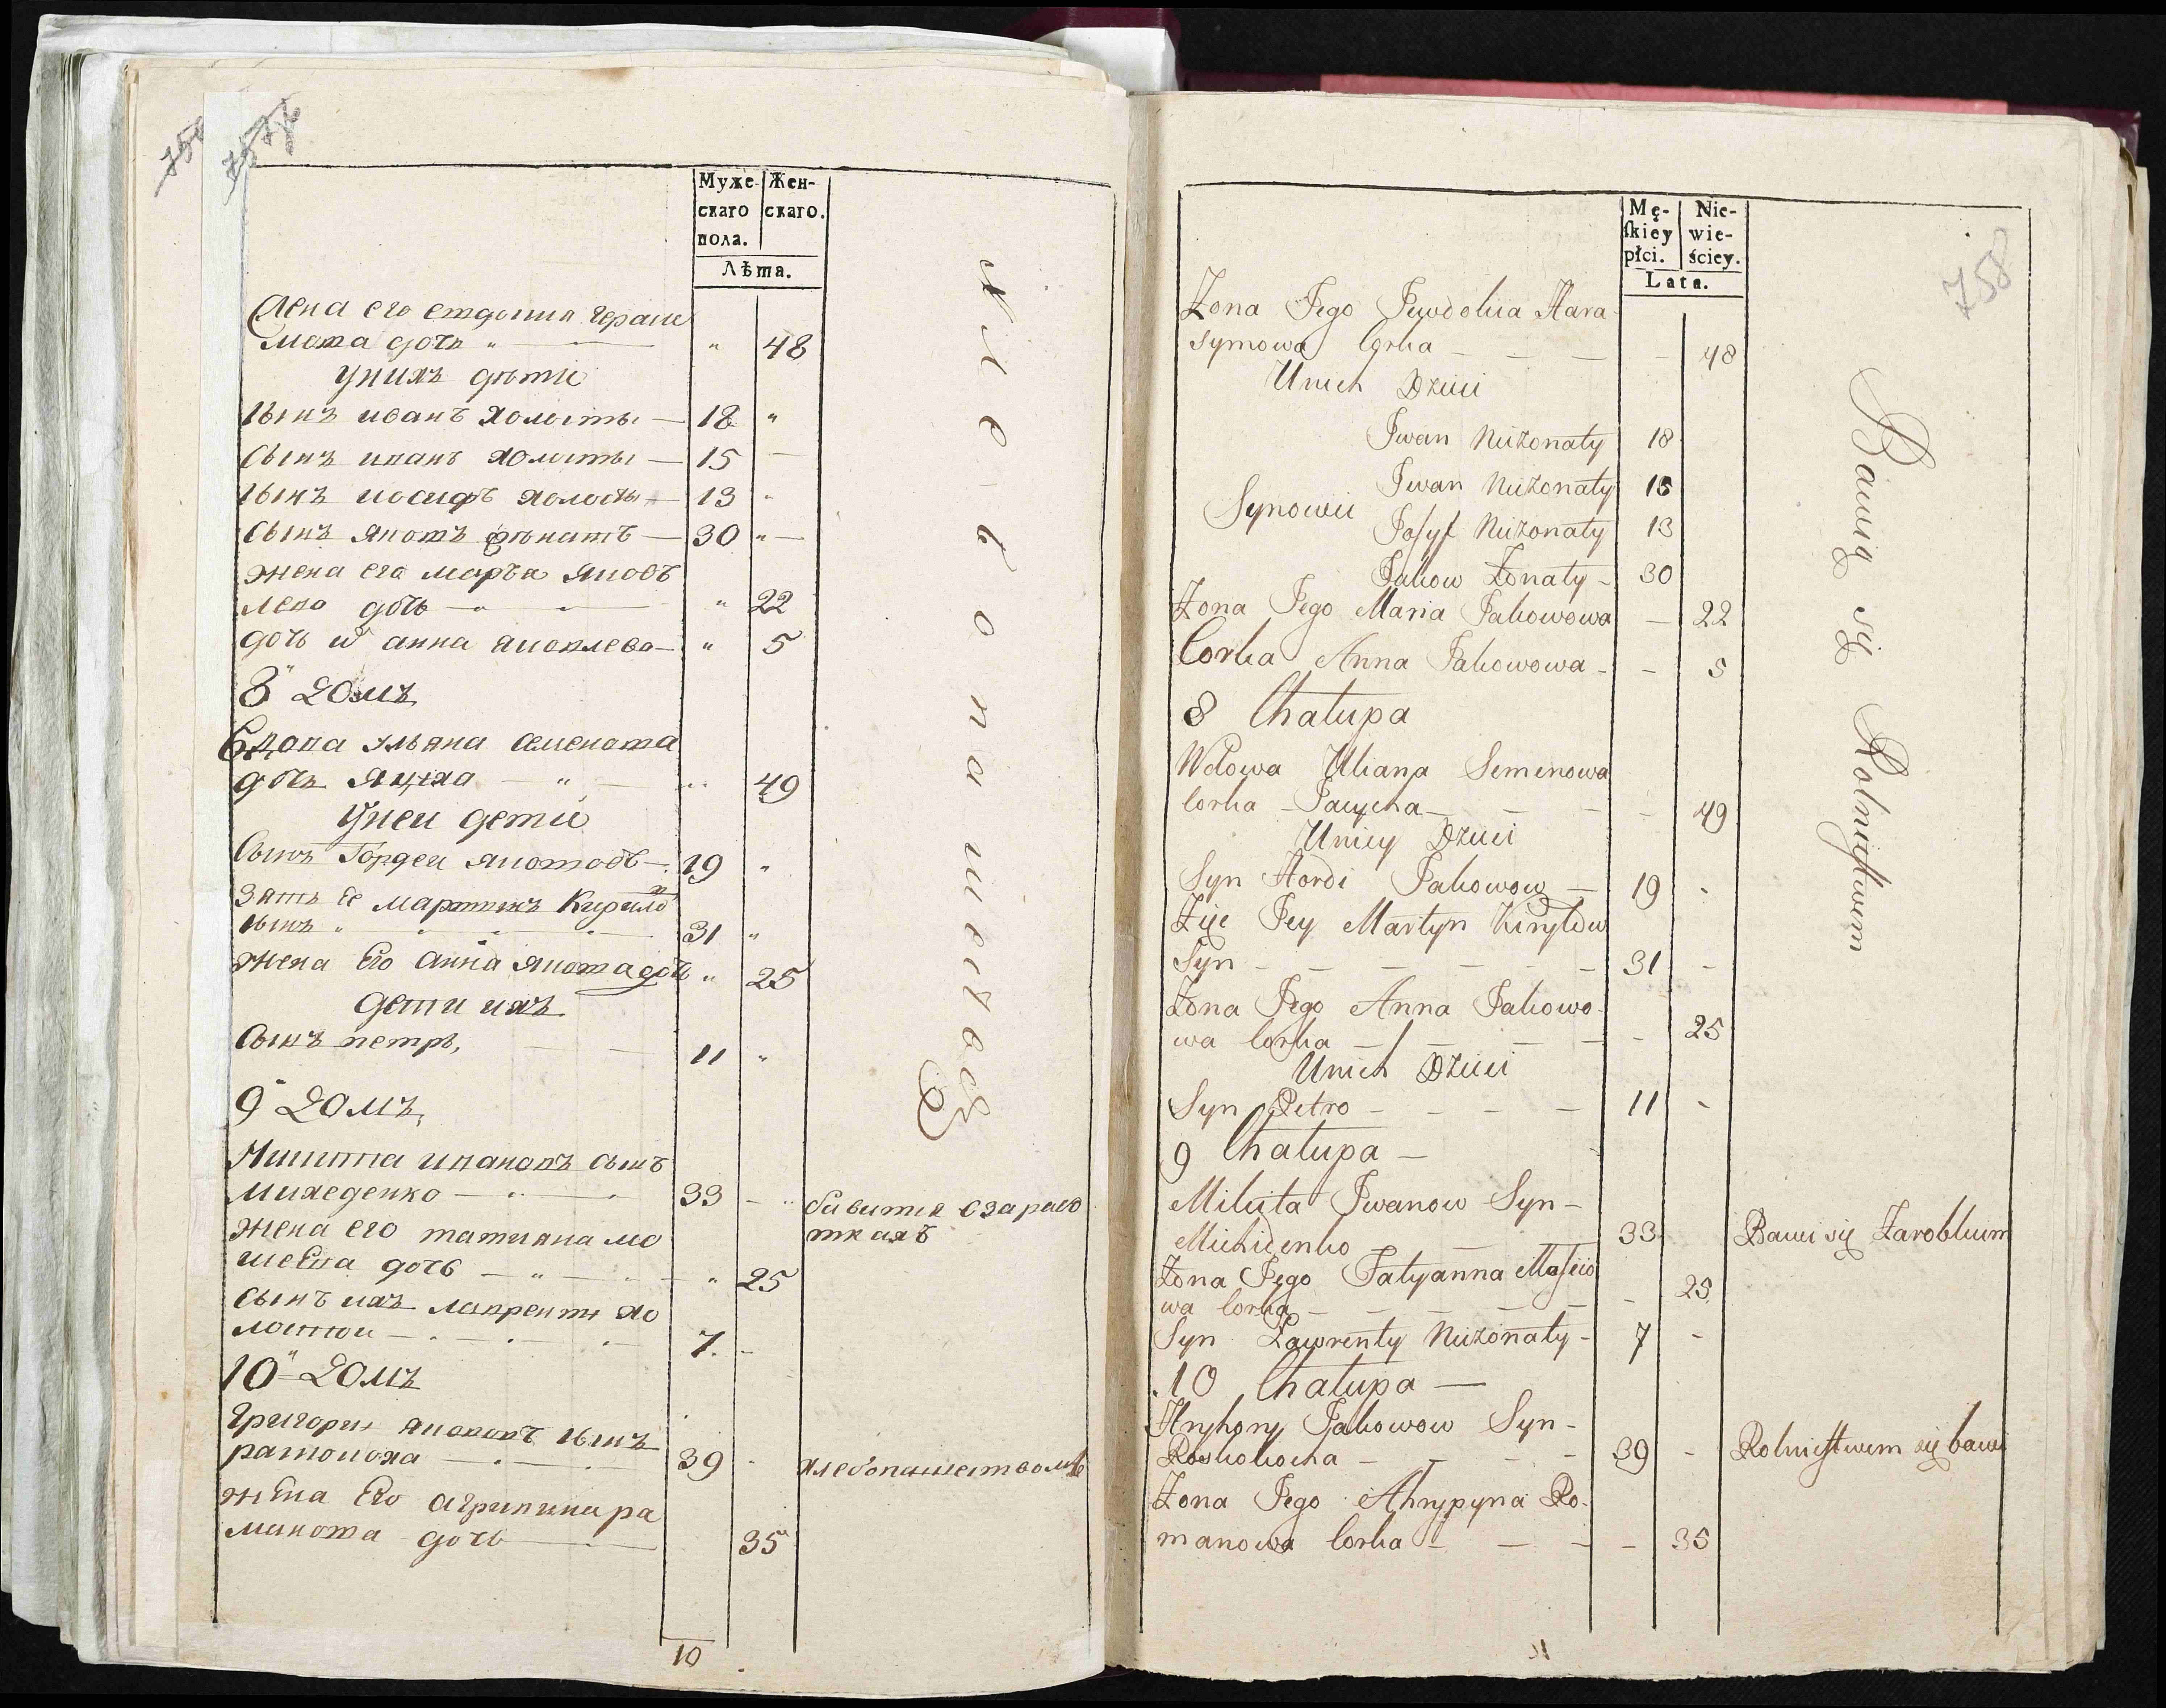 758
Муже-
скаго
пола.
Жен-
скаго.
Лѣта.
Жена его евдокия гераси
мова дочь " — " 48
Унихъ дѣти
Сынъ иванъ холосты — 18 "
Сынъ иванъ холосты — 15 —
Сынъ иосифъ холосты — 13 "
Сынъ яковъ женатъ — 30 " —
жена его марья яков
лева дочь — " — " 22
дочь анна яковлева — " 5
8" домъ
Вдова ульяна семенова
дочь Яцуха — " — 49
Унеи дети
Сынъ Гордеи якововъ — 19 "
Зять Ее мартынъ Кирилов
сынъ " — 31 "
жена Его Анна якова дочь " 25
дети ихъ
Сынъ петръ, — — 11 "
9" домъ,
Микита ивановъ сынъ
михеденко — " — 33 —
жена его татиана мо
сиева дочь — " — " 25
Сынъ ихъ лаврентии хо
лостои — 7. —
10" домъ
Григории яковов сынъ
раковоха — 39
жена Его агрипина ра
манова дочь — 35
Хлебопашество
бавится взарабо
ткахъ
Хлебопашеством
10
Mę-
ſkiey
płci.
Nie-
wie-
ściey.
Lata.
758
Zona Jego Jewdokia Hara
symowa Corka — — — — 48
Unich Dzieci
Iwan Niezonaty 18
Iwan Niezonaty 15
Synowie
Josyf Niezonaty 13
Jakow Zonaty — 30
Zona Jego Maria Jakowowa — 22
Corka Anna Jakowowa — — 5
8 Chałupa
Wdowa Uliana Semenowa
Corka Jacycha — — — — 49
Uniey Dzieci
Syn Hordi Jakowow — 19 -
Zięc Jey Martyn Kiryłow
Syn — — — — — — 31 -
Zona Jego Anna Jakowo
wa Corka — — — — — 25
Unich Dzieci
Syn Petro — — — — 11 -
9 Chałupa —
Mikita Iwanow Syn —
Michidenko — 33
Zona Jego Tatyanna Mosiio
wa Corka — — — — — 25
Syn Lawrenty Niezonaty — 7 -
10 Chałupa —
Hryhory Jakowow Syn —
Roskokocha — — — — 39 -
Zona Jego Ahrypyna Ro
manowa Corka — — — — 35
Bawią się Rolnictwem
Bawi się Zarobkiem
Rolnictwem się bawi